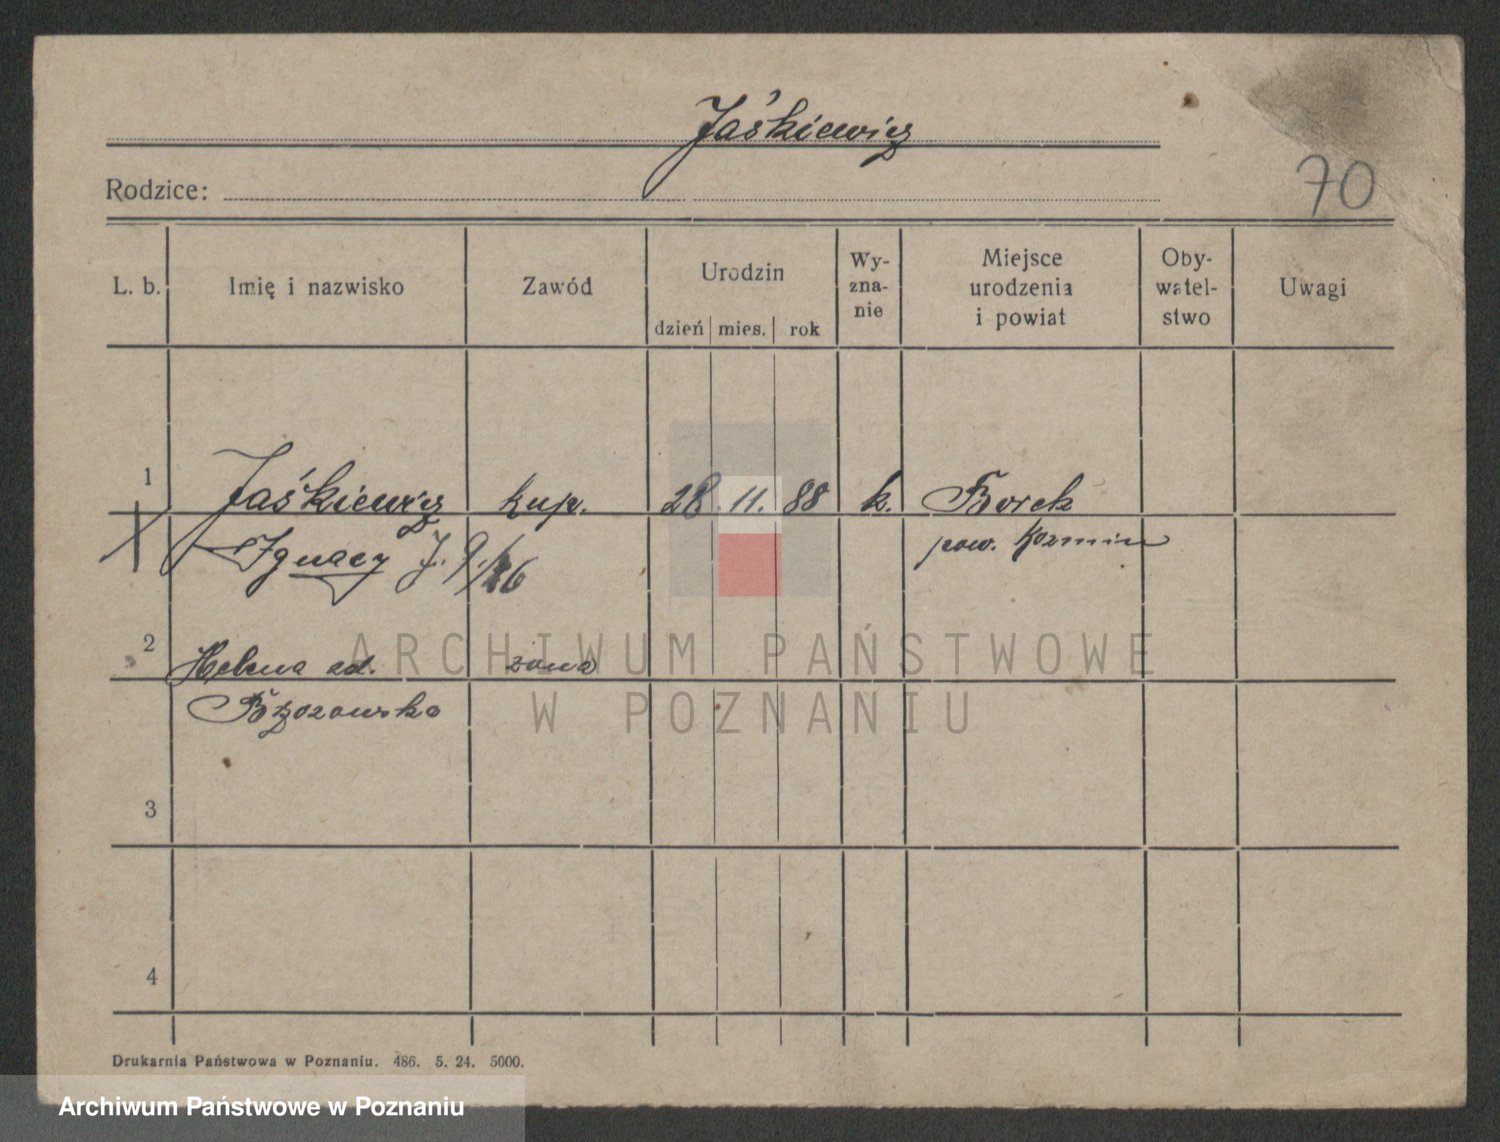 Jaśkiewicz
70
Rodzice:
L. b. Imię i nazwisko Zawód Urodzin Wy-zna-nie Miejsce urodzenia i powiat Oby-watel-stwo Uwagi
dzień mies. rok
1 Jaśkiewicz kup. 28. 11. 88 k. Borek
Ignacy pow. Kozmin
2 Helena zd. żona
Brzozowska
3
4
Drukarnia Państwowa w Poznaniu. 486. 5. 24. 5000.
ARCHIWUM PAŃSTWOWE
W POZNANIU
Archiwum Państwowe w Poznaniu